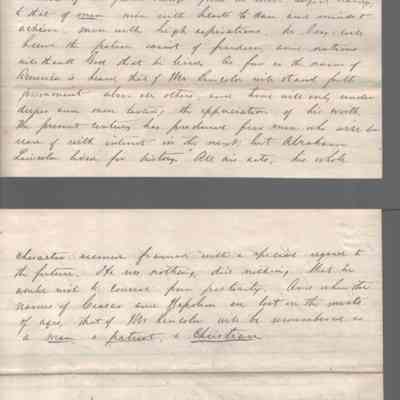 to that of man men with hearts to dare and minds to
achieve, men with high aspirations. He long will
become the patron saint of freedom, and nations
will thank God that he lived. As far as the name of
America is heard, that of Mr Lincoln will stand forth
prominent above all others, and time will only make
deeper and more lasting the appreciation of his worth
The present century has produced few men who will be
read of with interest in the next, but Abraham
Lincoln lived for history. All his acts, his whole
character seemed framed with a special regard to
the future. He was nothing, did nothing, that he
would wish to conceal from posterity. And when the
names of Ceasar and Napoleon are lost in the mists
of ages, that of Mr Lincoln will be remembered as
a man a patriot, a Christian